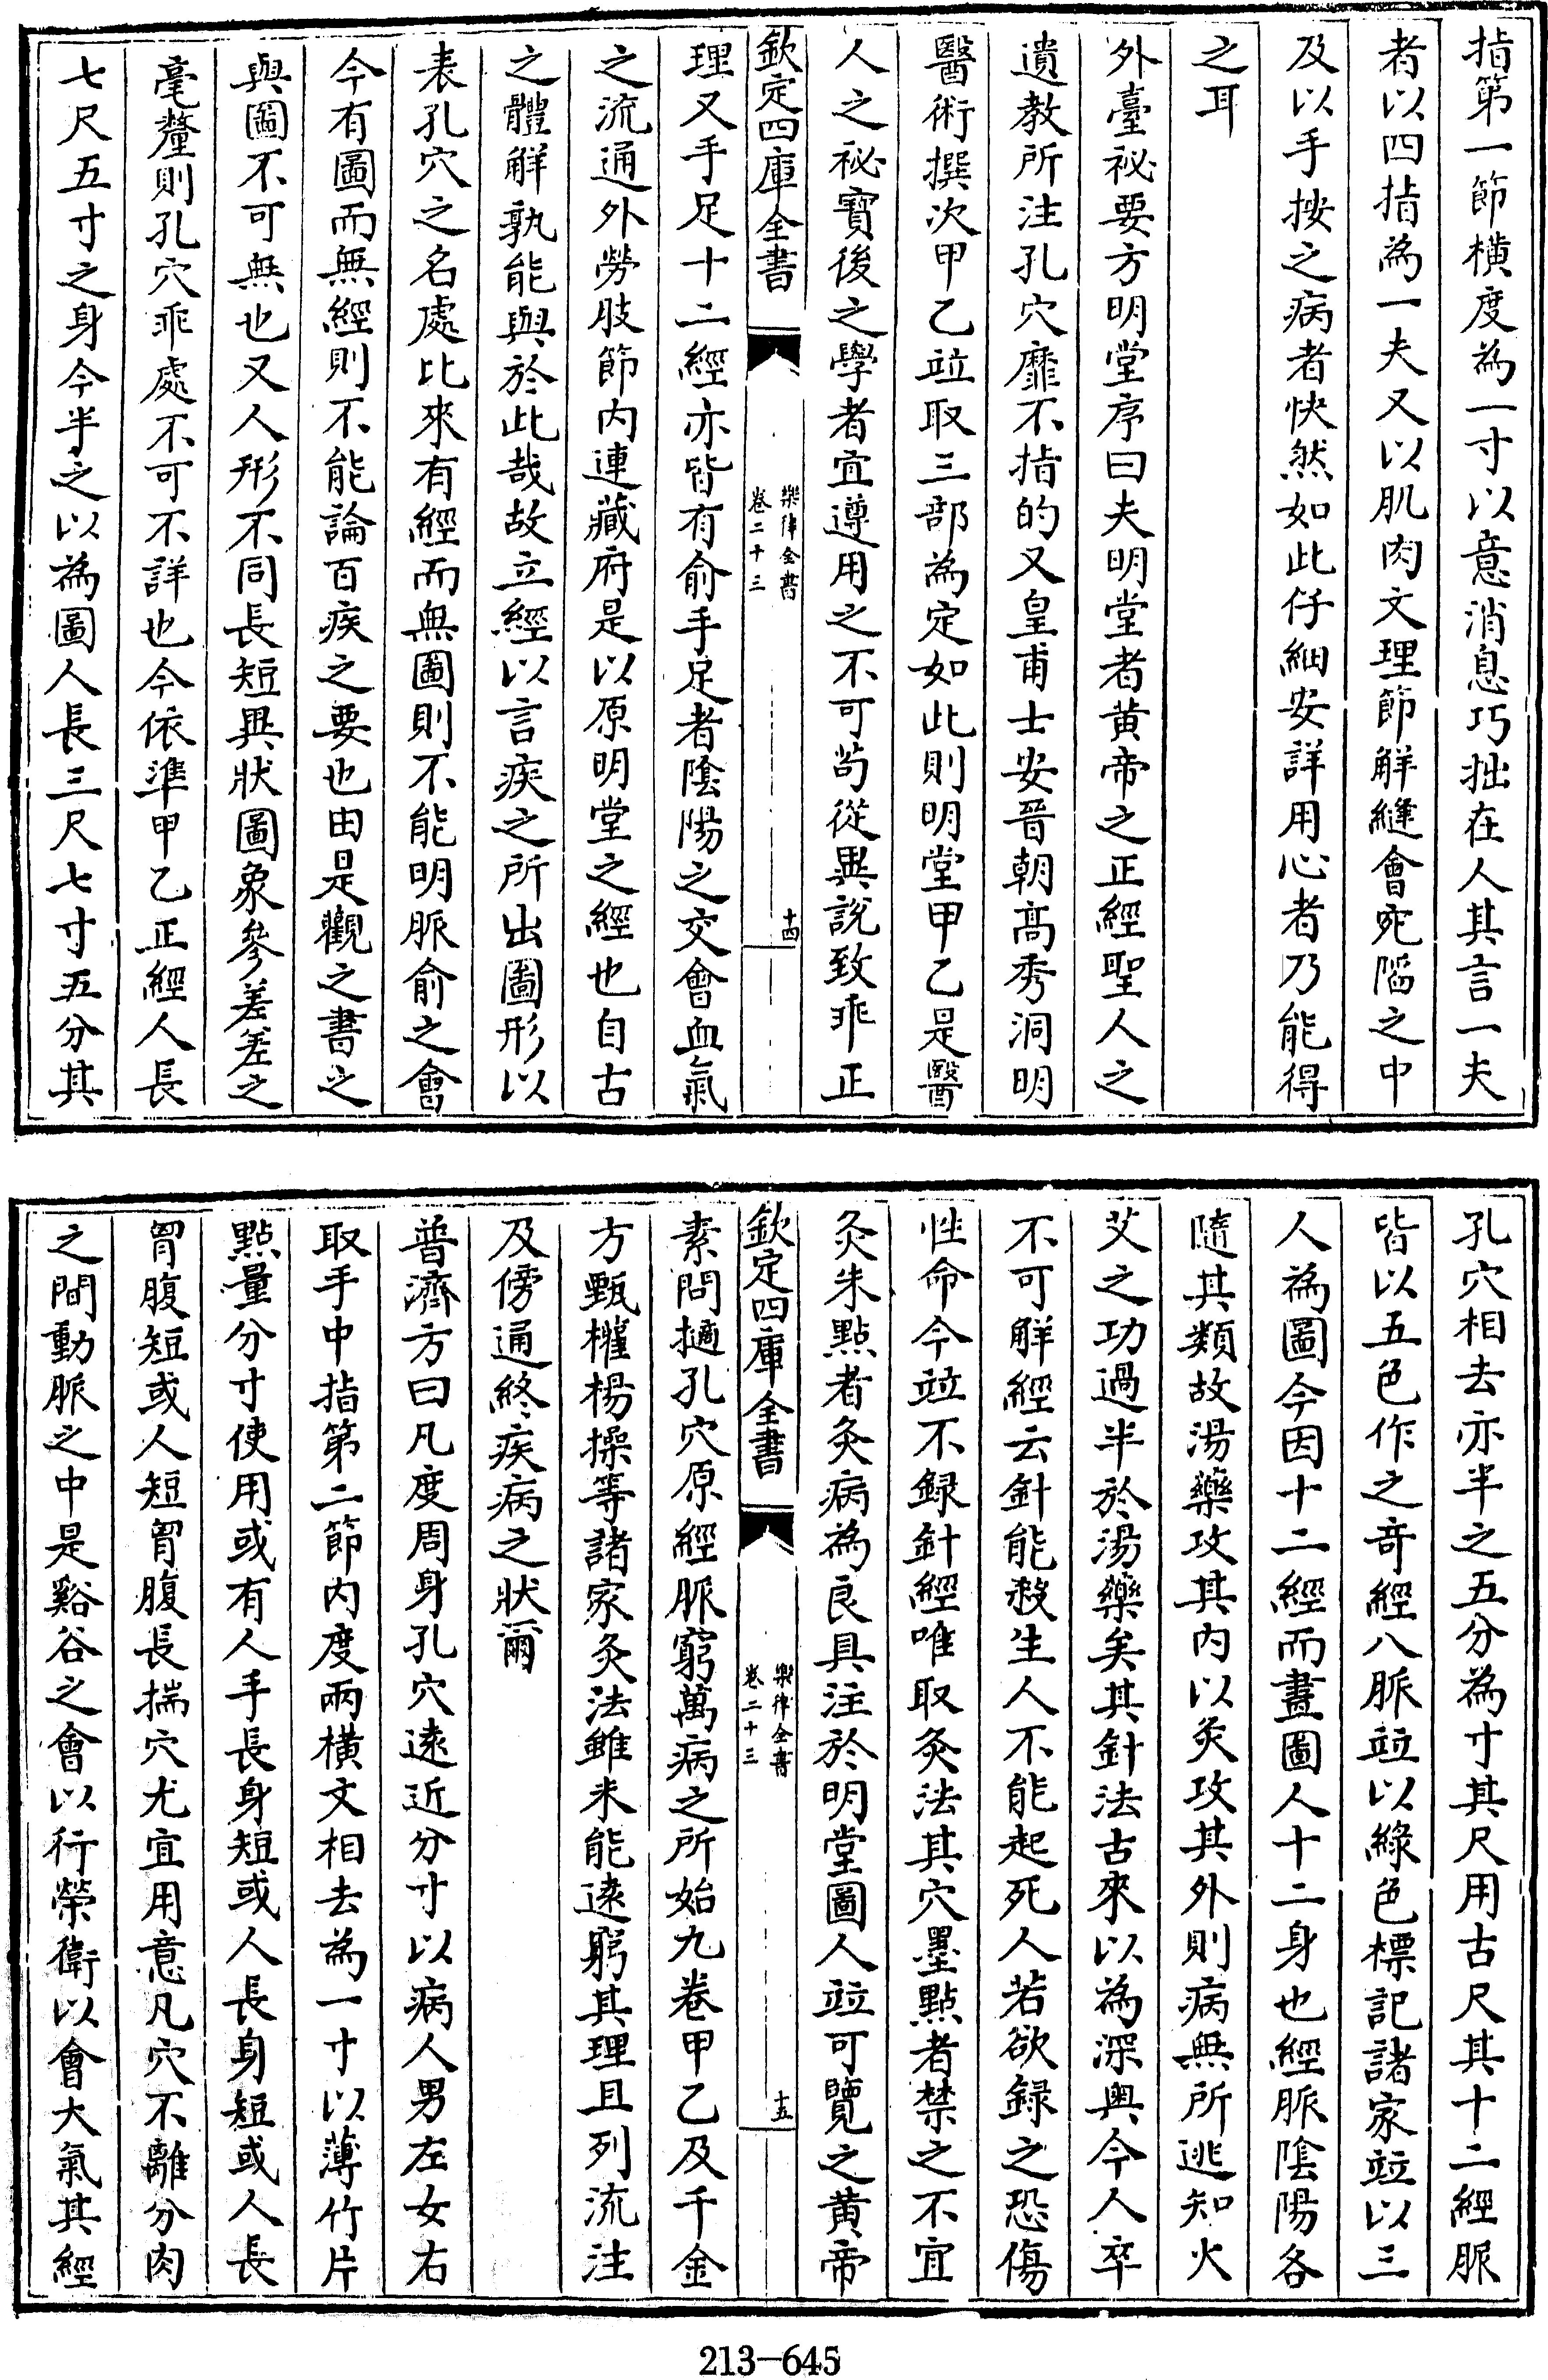 指第一節橫度為一寸以意消息巧拙在人其言一夫
者以四指為一夫又以肌肉文理節解縫會宛陷之中
及以手按之病者快然如此仔細安詳用心者乃能得
之耳
外臺祕要方明堂序曰夫明堂者黃帝之正經聖人之
遺教所注孔穴靡不指的又皇甫士安晉朝髙秀洞明
醫術撰次甲乙竝取三部為定如此則明堂甲乙是醫
人之祕寶後之學者宜遵用之不可茍從異說致乖正
欽定四庫全書
樂律全書
卷二十三
十四
理又手足十二經亦皆有俞手足者陰陽之交會血氣
之流通外勞肢節内連藏府是以原明堂之經也自古
之體解孰能與於此哉故立經以言疾之所出圖形以
表孔穴之名處比來有經而無圖則不能明脈俞之會
今有圖而無經則不能論百疾之要也由是觀之書之
與圖不可無也又人形不同長短異狀圖象參差差之
毫釐則孔穴乖處不可不詳也今依準甲乙正經人長
七尺五寸之身今半之以為圖人長三尺七寸五分其
孔穴相去亦半之五分為寸其尺用古尺其十二經脈
皆以五色作之竒經八脈竝以綠色標記諸家竝以三
人為圖今因十二經而畫圖人十二身也經脈陰陽各
隨其類故湯藥攻其内以灸攻其外則病無所逃知火
艾之功過半於湯藥矣其針法古來以為深奥今人卒
不可解經云針能殺生人不能起死人若欲録之恐傷
性命今竝不録針經唯取灸法其穴墨點者禁之不宜
灸朱點者灸病為良具注於明堂圖人竝可覽之黃帝
欽定四庫全書
樂律全書
卷二十三
十五
素問擿孔穴原經脈窮萬病之所始九卷甲乙及千金
方甄權楊操等諸家灸法雖未能遠窮其理且列流注
及傍通終疾病之狀爾
普濟方曰凡度周身孔穴遠近分寸以病人男左女右
取手中指第二節内度兩橫文相去為一寸以薄竹片
點量分寸使用或有人手長身短或人長身短或人長
胷腹短或人短胷腹長揣穴尤宜用意凡穴不離分肉
之間動脈之中是谿谷之會以行榮衛以會大氣其經
213-645